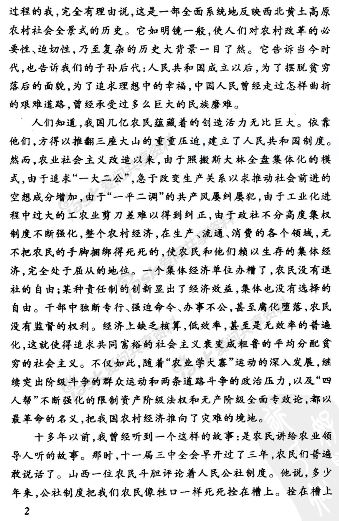 过程的我,完全有理由说,这是一部全面系统地反映西北黄土高原
农村社会全景式的历史。它如明镜一般,使人们对农村改革的必
要性、迫切性,乃至复杂的历史大背景一目了然。它告诉当今时
代,也告诉我们的子孙后代:人民共和国成立以后,为了摆脱贫穷
落后的面貌,为了追求理想中的幸福,中国人民曾经走过怎样曲折
的艰难道路,曾经承受过多么巨大的民族磨难。
人们知道,我国几亿农民蕴藏着的创造活力无比巨大。依靠
他们,方得以推翻三座大山的重重压迫,建立了人民共和国制度。
然而,农业社会主义改造以来,由于照搬斯大林全盘集体化的模
式,由于追求“一大二公”,急于改变生产关系以求推动社会前进的
空想成分增加,由于“一平二调”的共产风屡纠屡犯,由于工业化进
程中过大的工农业剪刀差难以得到纠正,由于政社不分高度集权
制度不断强化,整个农村经济,在生产、流通、消费的各个领域,无
不把农民的手脚捆绑得死死的,使农民和他们赖以生存的集体经
济,完全处于屈从的地位。一个集体经济单位办糟了,农民没有退
社的自由;某种责任制的创新显出了经济效益,集体也没有选择的
自由。干部中独断专行、强迫命令、办事不公,甚至腐化堕落,农民
没有监督的权利。经济上缺乏核算,低效率,甚至是无效率的普遍
化,这就使得追求共同富裕的社会主义衰变成粗鲁的平均分配贫
穷的社会主义。不仅如此,随着“农业学大寨”运动的深入发展,继
续突出阶级斗争的群众运动和两条道路斗争的政治压力,以及“四
人帮”不断强化的限制资产阶级法权和无产阶级全面专政论,都以
最革命的名义,把我国农村经济推向了灾难的境地。
十多年以前,我曾经听到一个这样的故事;是农民讲给农业领
导人听的故事。那时,十一届三中全会早开过了三年,农民们普遍
敢说话了。山西一位农民斗胆评论着人民公社制度。他说,多少
年来,公社制度把我们农民像牲口一样死死拴在槽上。拴在槽上
2